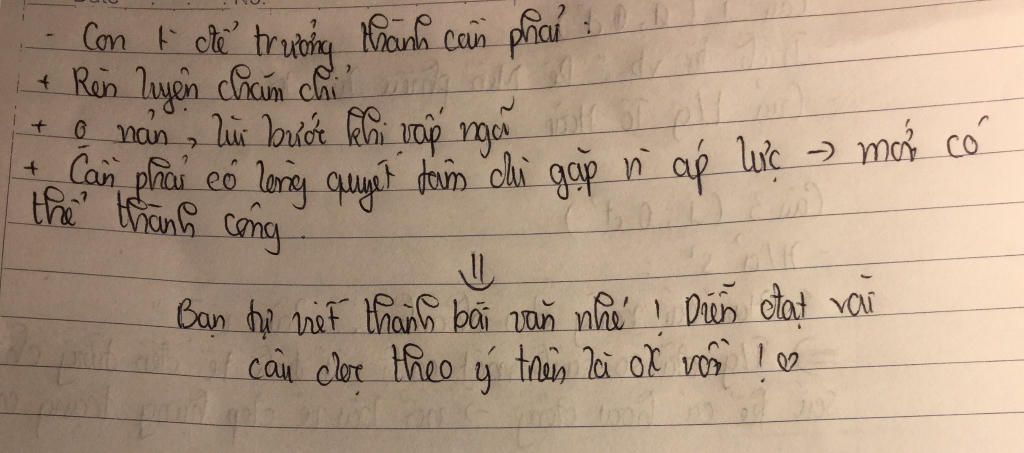 - Con t để trưởng thành cần phải :
+ Rèn luyện chăm chỉ
+ o nản, lùi bước khi vấp ngã
+ Cần phải có lòng quyết tâm dù gặp n` áp lực → mới có
thể thành công.
⇓
Bạn tự viết thành bài văn nhé ! Diễn đạt vài
câu dựa theo ý trên là ok rồi ! ♡